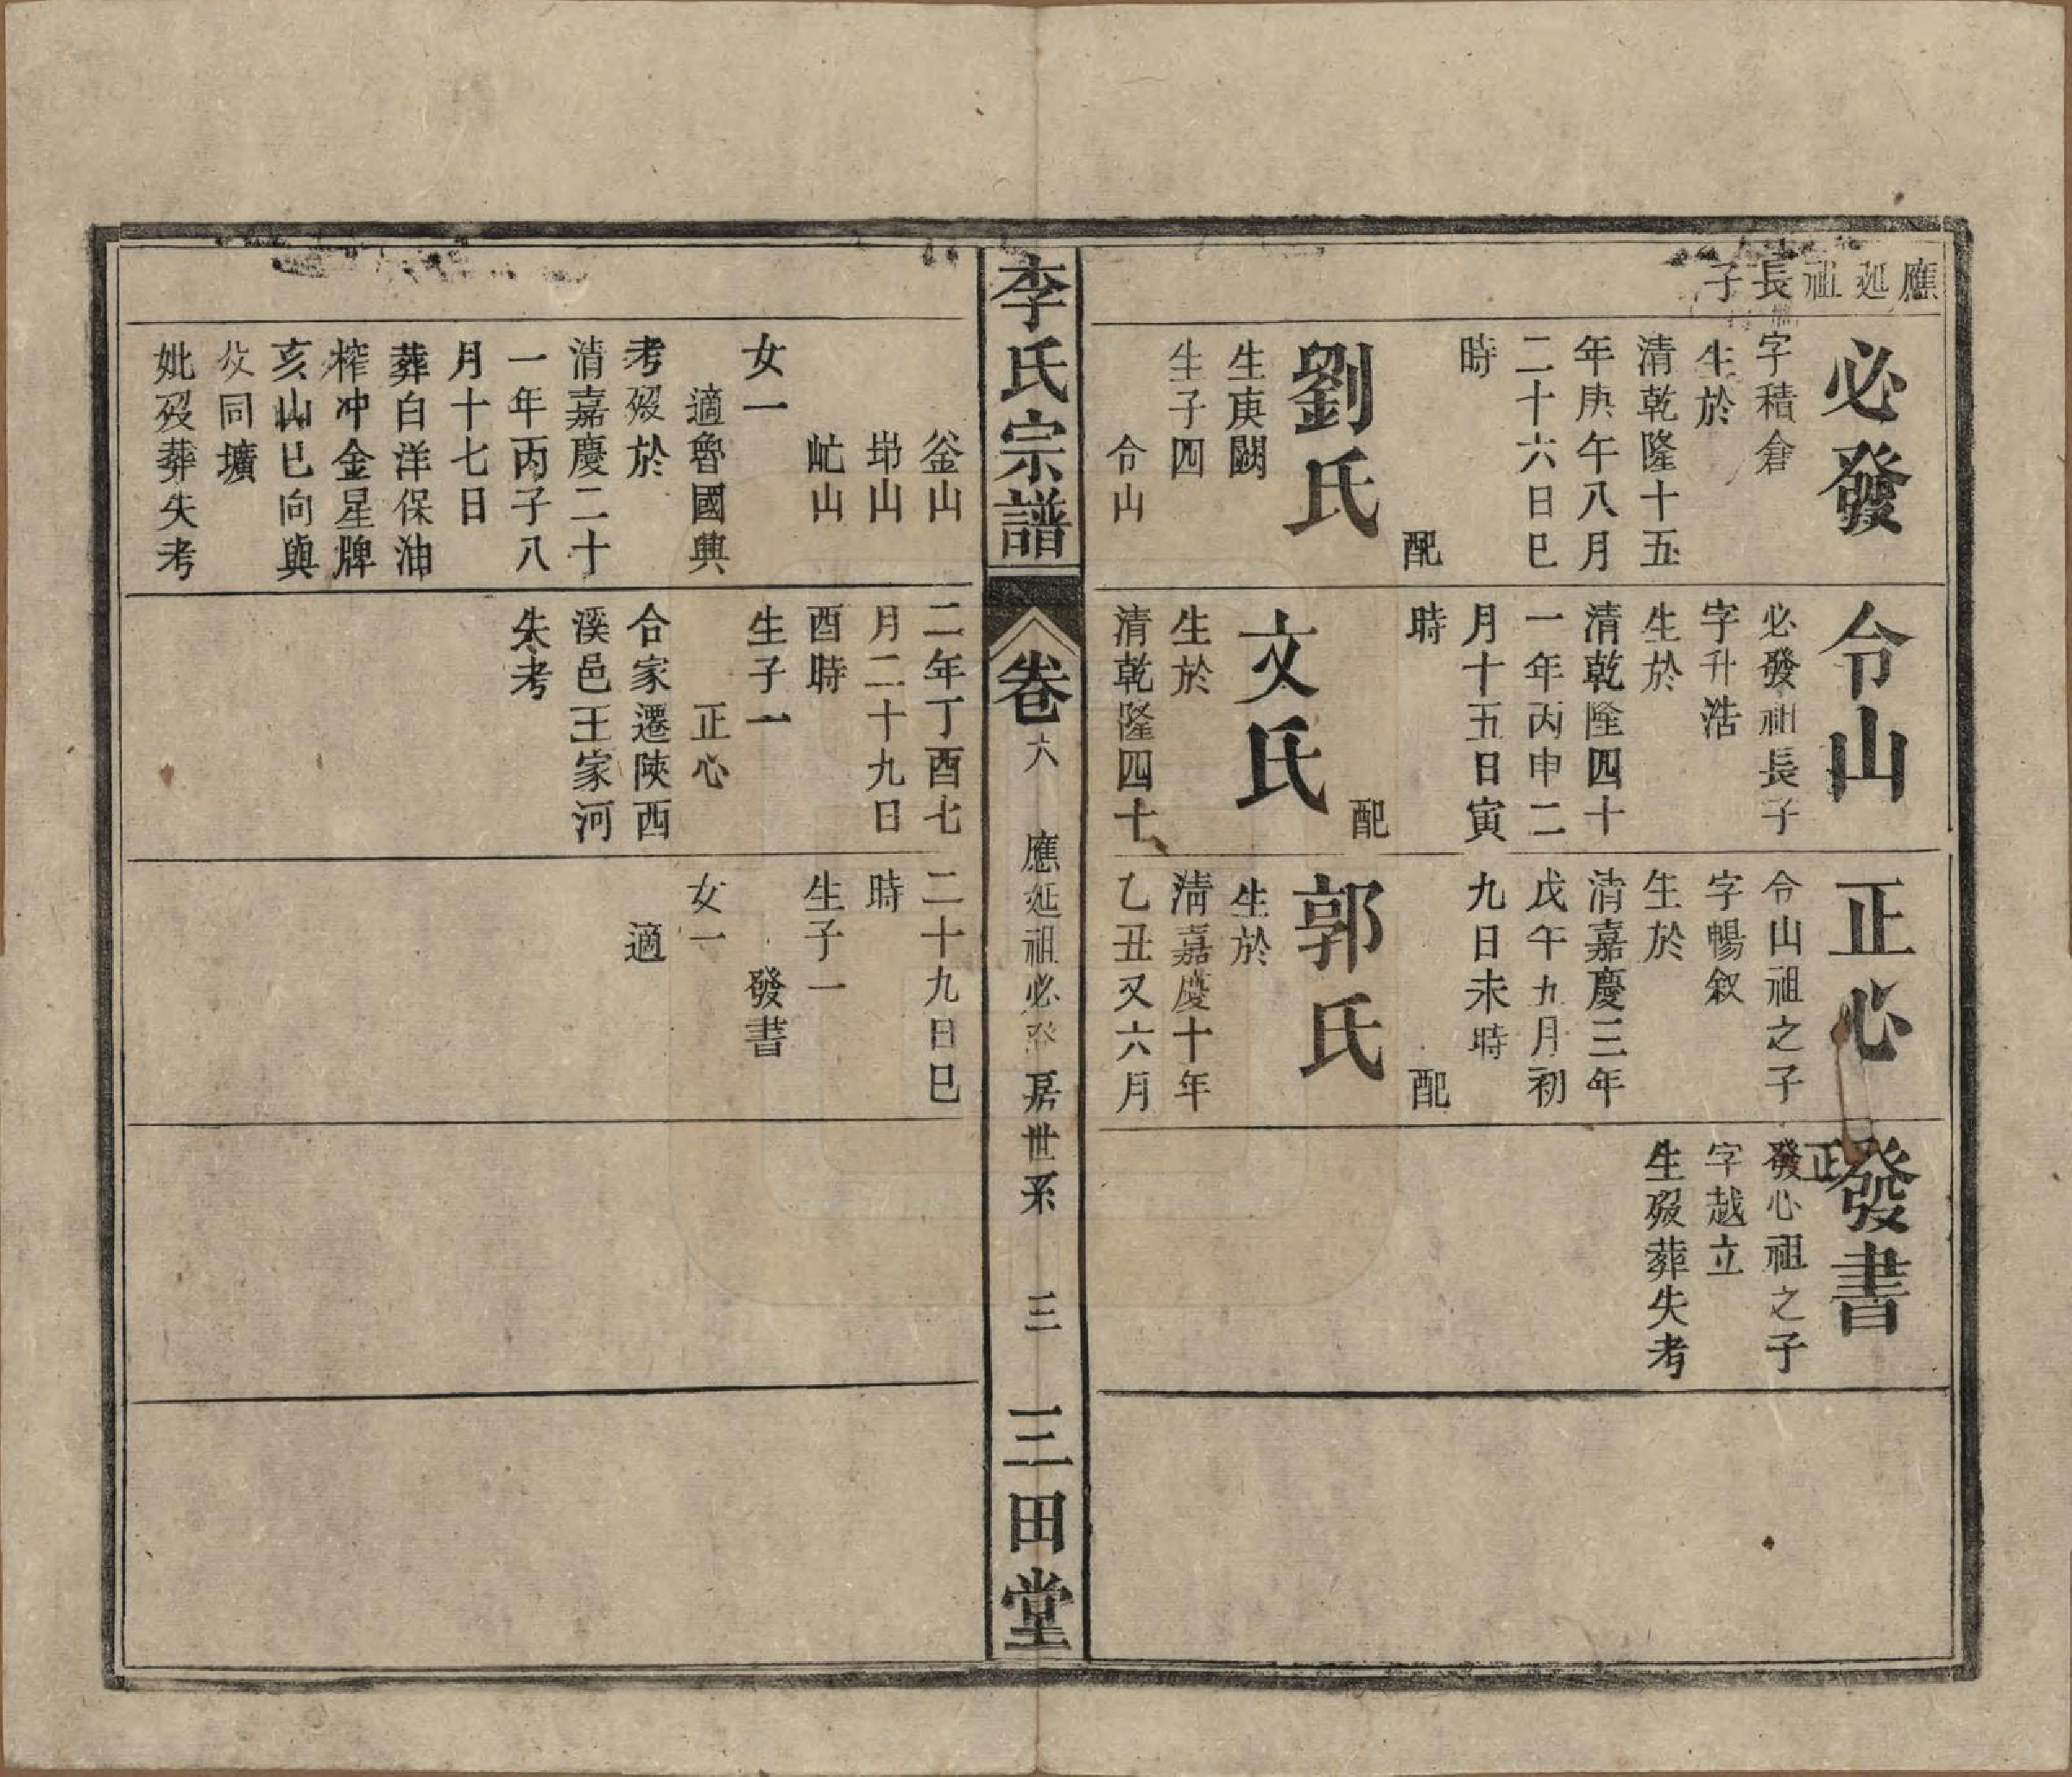 應
廵
祖
長
子
必發
字積倉
生於
清乾隆十五
年庚午八月
二十六日巳
時
配
劉氏
生庚闕
生子四
令山
令山
必發祖長子
字升浩
生於
清乾隆四十
一年丙申二
月十五日寅
時
配
文氏
生於
清乾隆四十
正心
令山祖之子
字暢叙
生於
清嘉慶三年
戊午九月初
九日未時
配
郭氏
生於
清嘉慶十年
乙丑又六月
發書
正
發心祖之子
字越立
生歿葬失考
李氏宗譜
卷六
應廵祖必發房世系
三
三田堂
釜山
峁山
屹山
女一
適魯國興
考歿於
清嘉慶二十
一年丙子八
月十七日
葬白洋保油
榨冲金星牌
亥山巳向與
父同壙
妣歿葬失考
二年丁酉七
月二十九日
酉時
生子一
正心
合家遷陝西
溪邑王家河
失考
二十九日巳
時
生子一
發書
女一
適